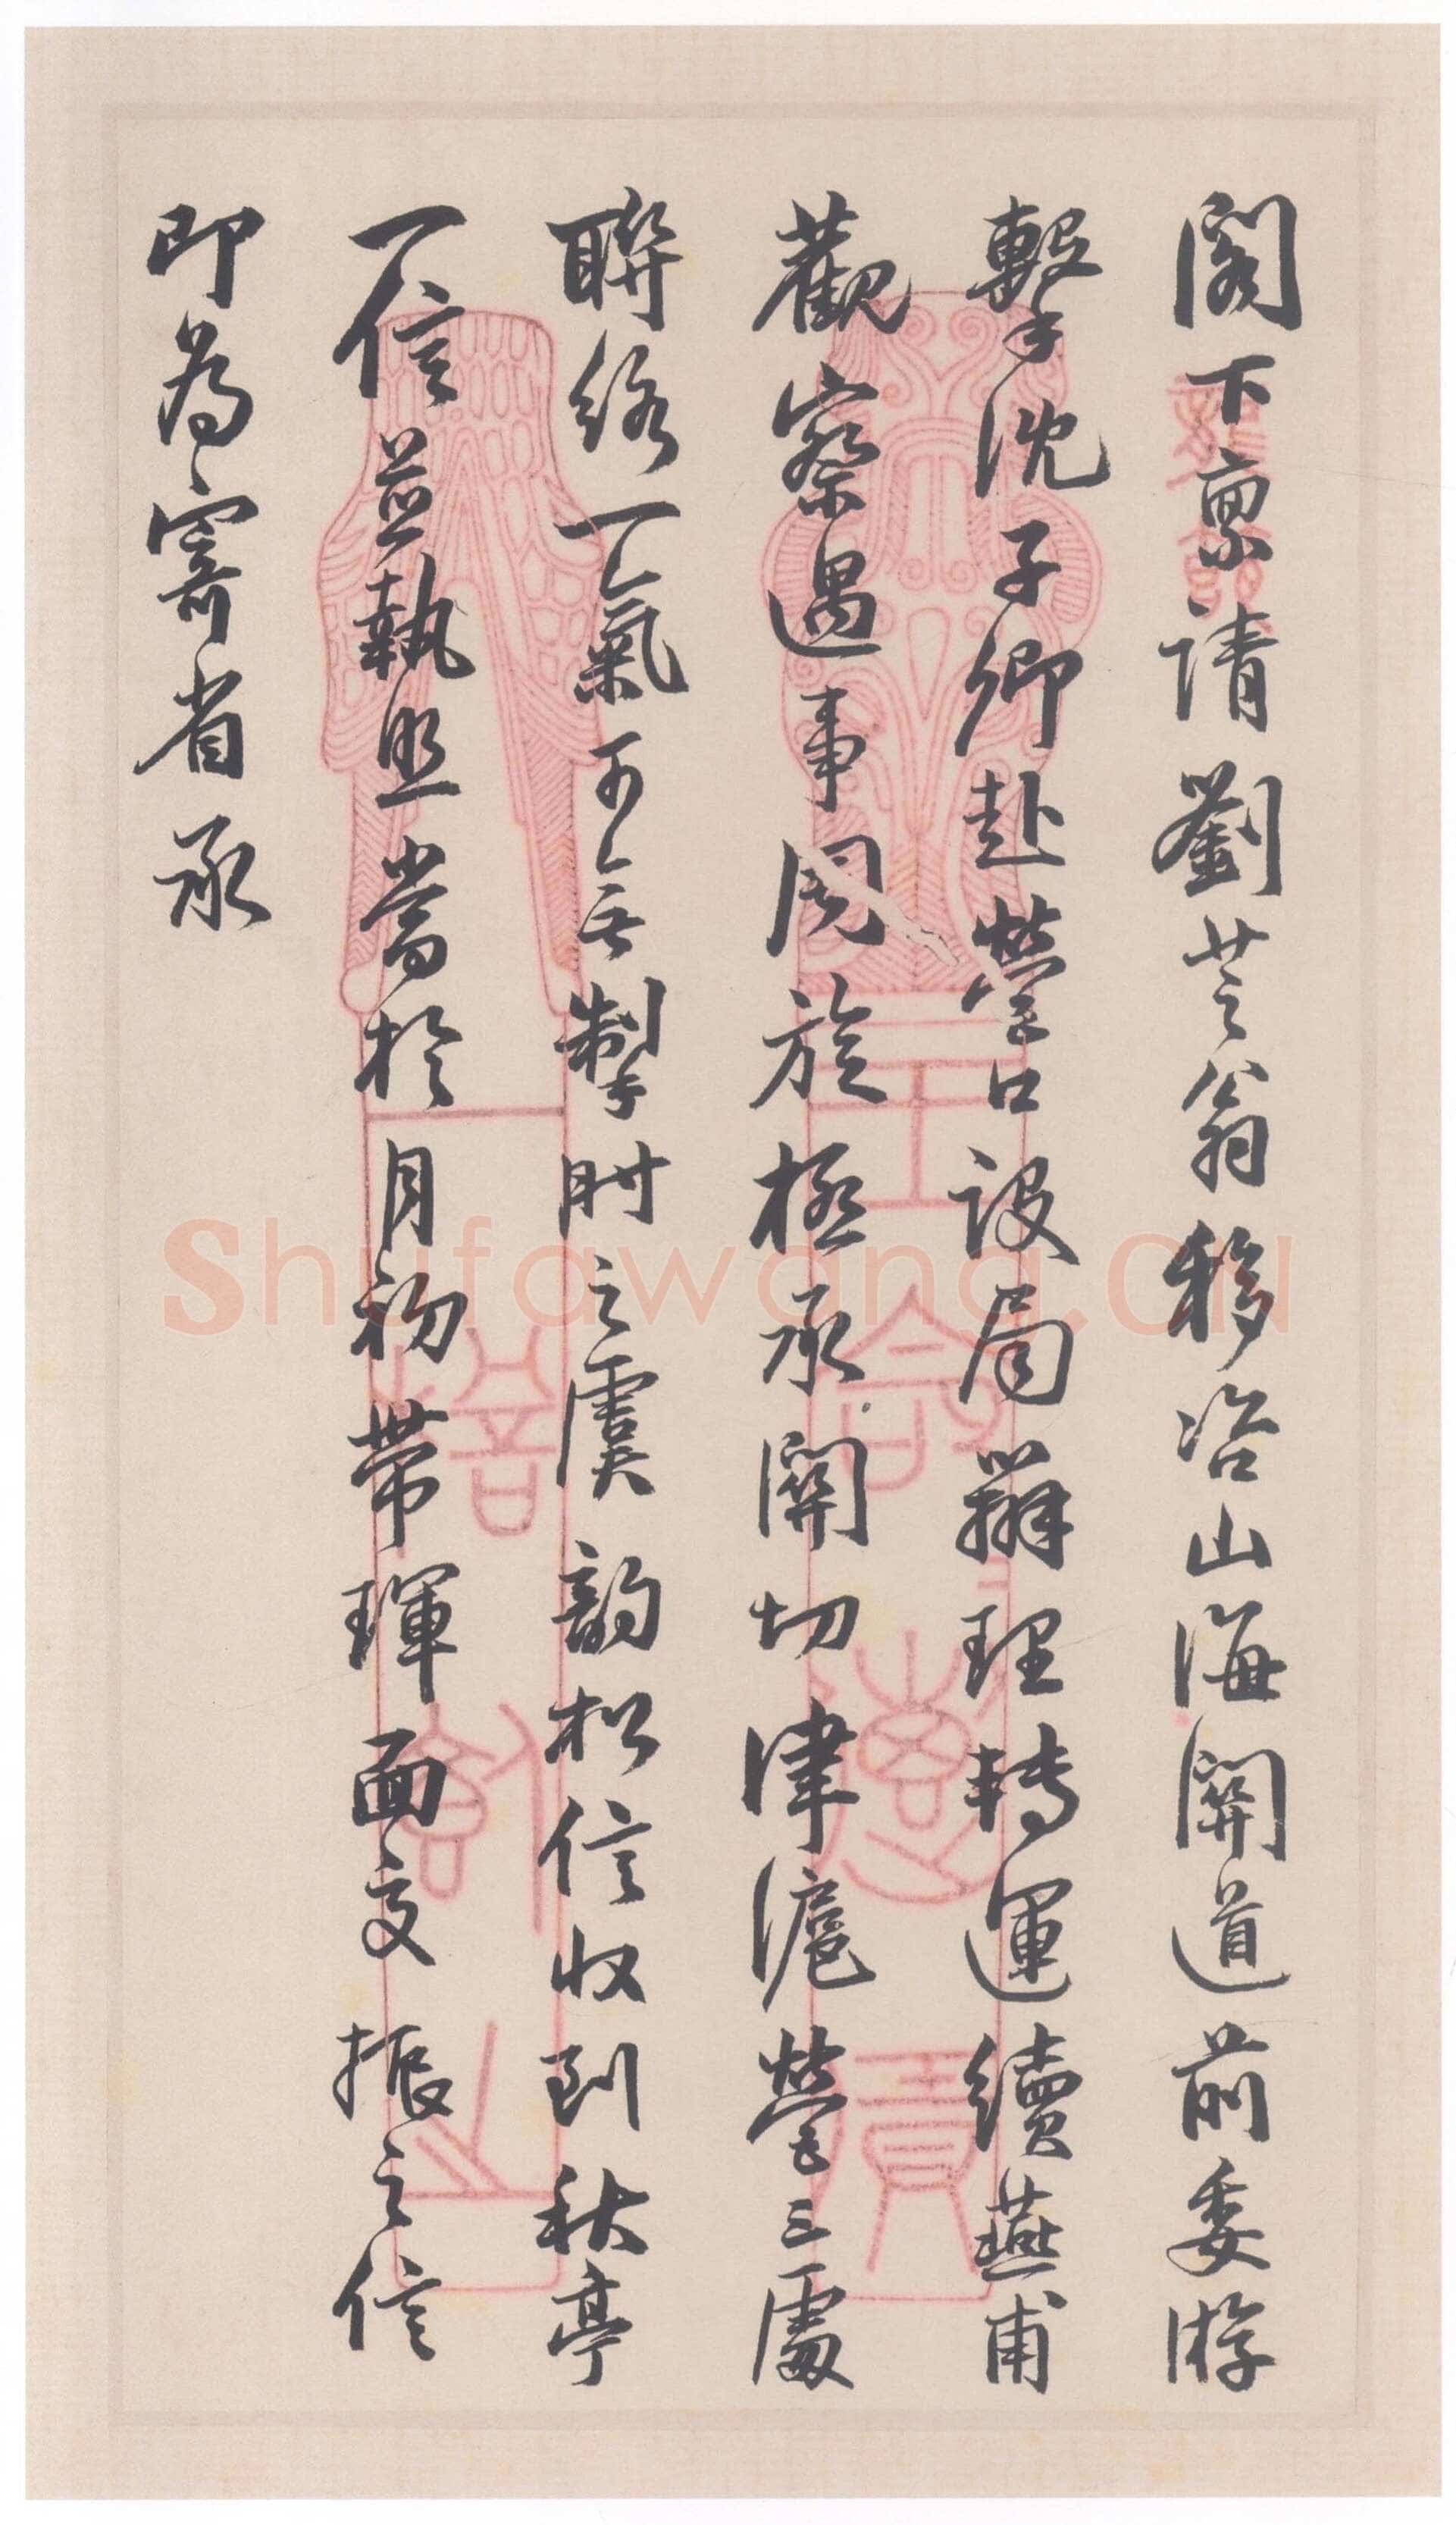 閣下稟請劉芝翁移咨山海關道前委游
擊沈子卿赴營口設局辦理轉運續燕甫
觀察遇事周旋極承關切津滬營三處
聯絡一氣可無掣肘之虞韵松信收到秋亭
一信並執照當於月初帶琿面交振之信
即為寄省承
Shufawang.CN